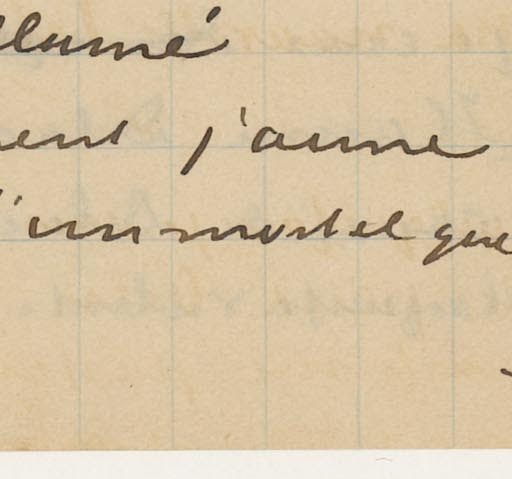 llumé
ent j'aime
l'immortel que